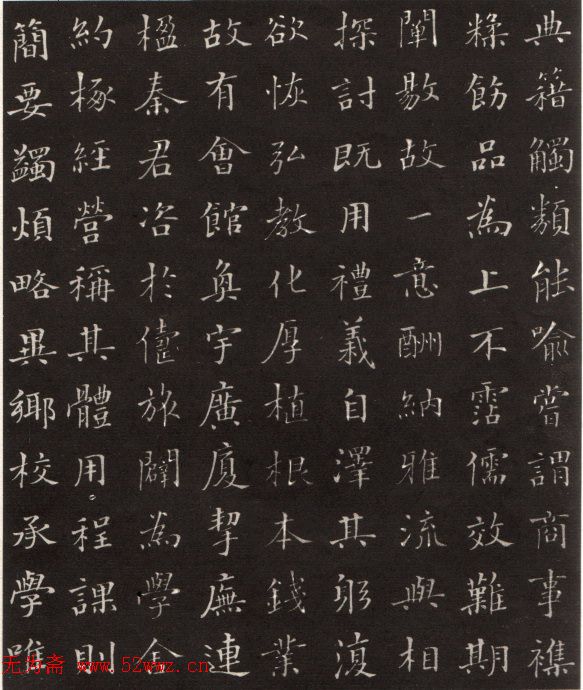 典籍觸類能喻嘗謂商事襍
糅飭品為上不霑儒效難期
闡敭故一意酬納雅流與相
探討既用禮義自澤其躬復
欲恢弘教化厚植根本錢業
故有會館奐宇廣廈挈廡連
楹秦君咨於旅闢為學舍
約椓經營稱其體用程課則
簡要蠲煩略異鄉校承學唯
无为斋 www.52wwz.cn